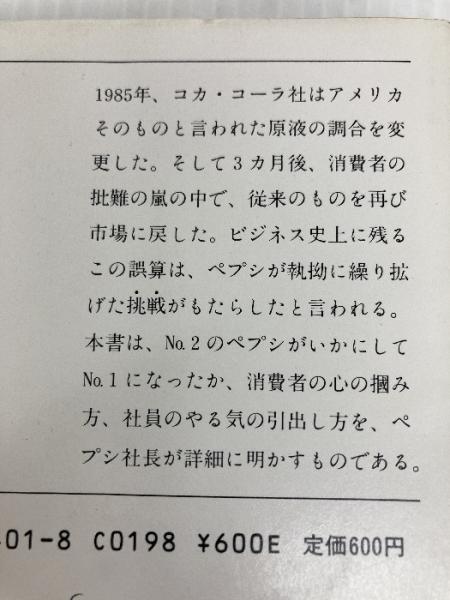 1985年、コカ・コーラ社はアメリカ
そのものと言われた原液の調合を変
更した。そして3カ月後、消費者の
批難の嵐の中で、従来のものを再び
市場に戻した。ビジネス史上に残る
この誤算は、ペプシが執拗に繰り拡
げた挑戦がもたらしたと言われる。
本書は、No.2のペプシがいかにして
No.1になったか、消費者の心の摑み
方、社員のやる気の引出し方を、ペ
プシ社長が詳細に明かすものである。
01-8 C0198 ¥600E 定価600円